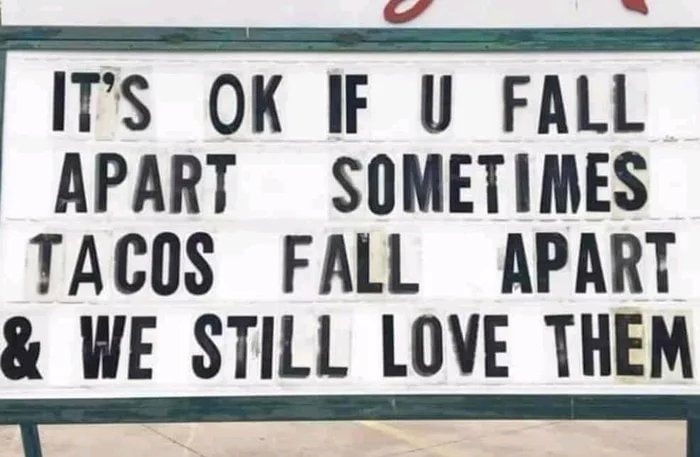 IT'S OK IF U FALL
APART SOMETIMES
TACOS FALL APART
& WE STILL LOVE THEM